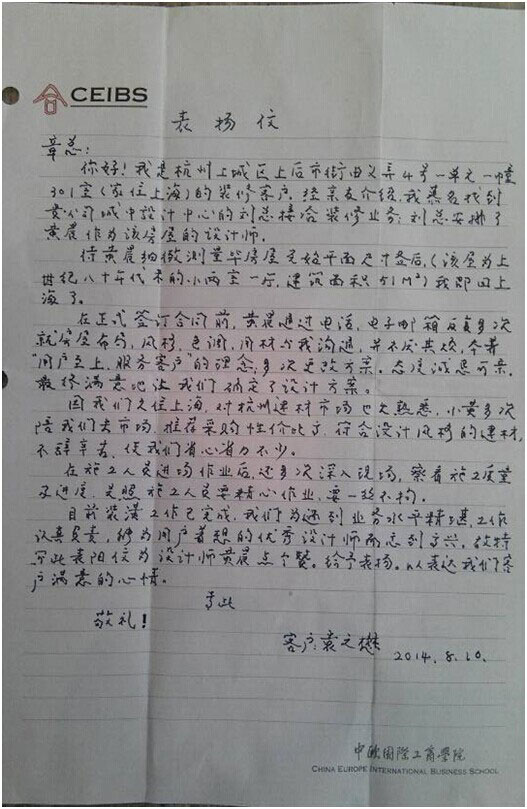 CEIBS
表扬信
章总:
你好!我是杭州上城区上后市街由义弄4号一单元一幢
301室(家住上海)的装修客户.经亲友介绍,我慕名找到
贵公司城中设计中心的刘总接洽装修业务,刘总安排了
黄晨作为该房屋的设计师.
待黄晨细微测量毕房屋各始平面尺寸签后,(该屋为上
世纪八十年代末的小两室一厅,建筑面积51M²)我即回上
海了.
在正式签订合同前,黄晨通过电话,电子邮箱反复多次
就房屋布局,风格,色调,用材与我沟通,并不厌其烦,本着
"用户至上,服务客户"的理念,多次更改方案.态度诚恳可亲.
最终满意地让我们确定了设计方案.
因我们久住上海,对杭州建材市场也欠熟悉,小黄多次
陪我们去市场,推荐采购性价比高,符合设计风格的建材,
不辞辛苦,使我们省心省力不少.
在施工人员进场作业后,还多次深入现场,察看施工质量
及进度,关照施工人员要精心作业,要一丝不拘.
目前装潢工作已完成,我们为遇到业务水平精湛,工作
认真负责,能为用户着想的优秀设计师而感到高兴,故特
写此表阳信为设计师黄晨点个赞.给予表扬.以表达我们客
户满意的心情.
专此
敬礼!
客户:袁之懋
2014.8.10.
中欧國際工商學院
CHINA EUROPE INTERNATIONAL BUSINESS SCHOOL